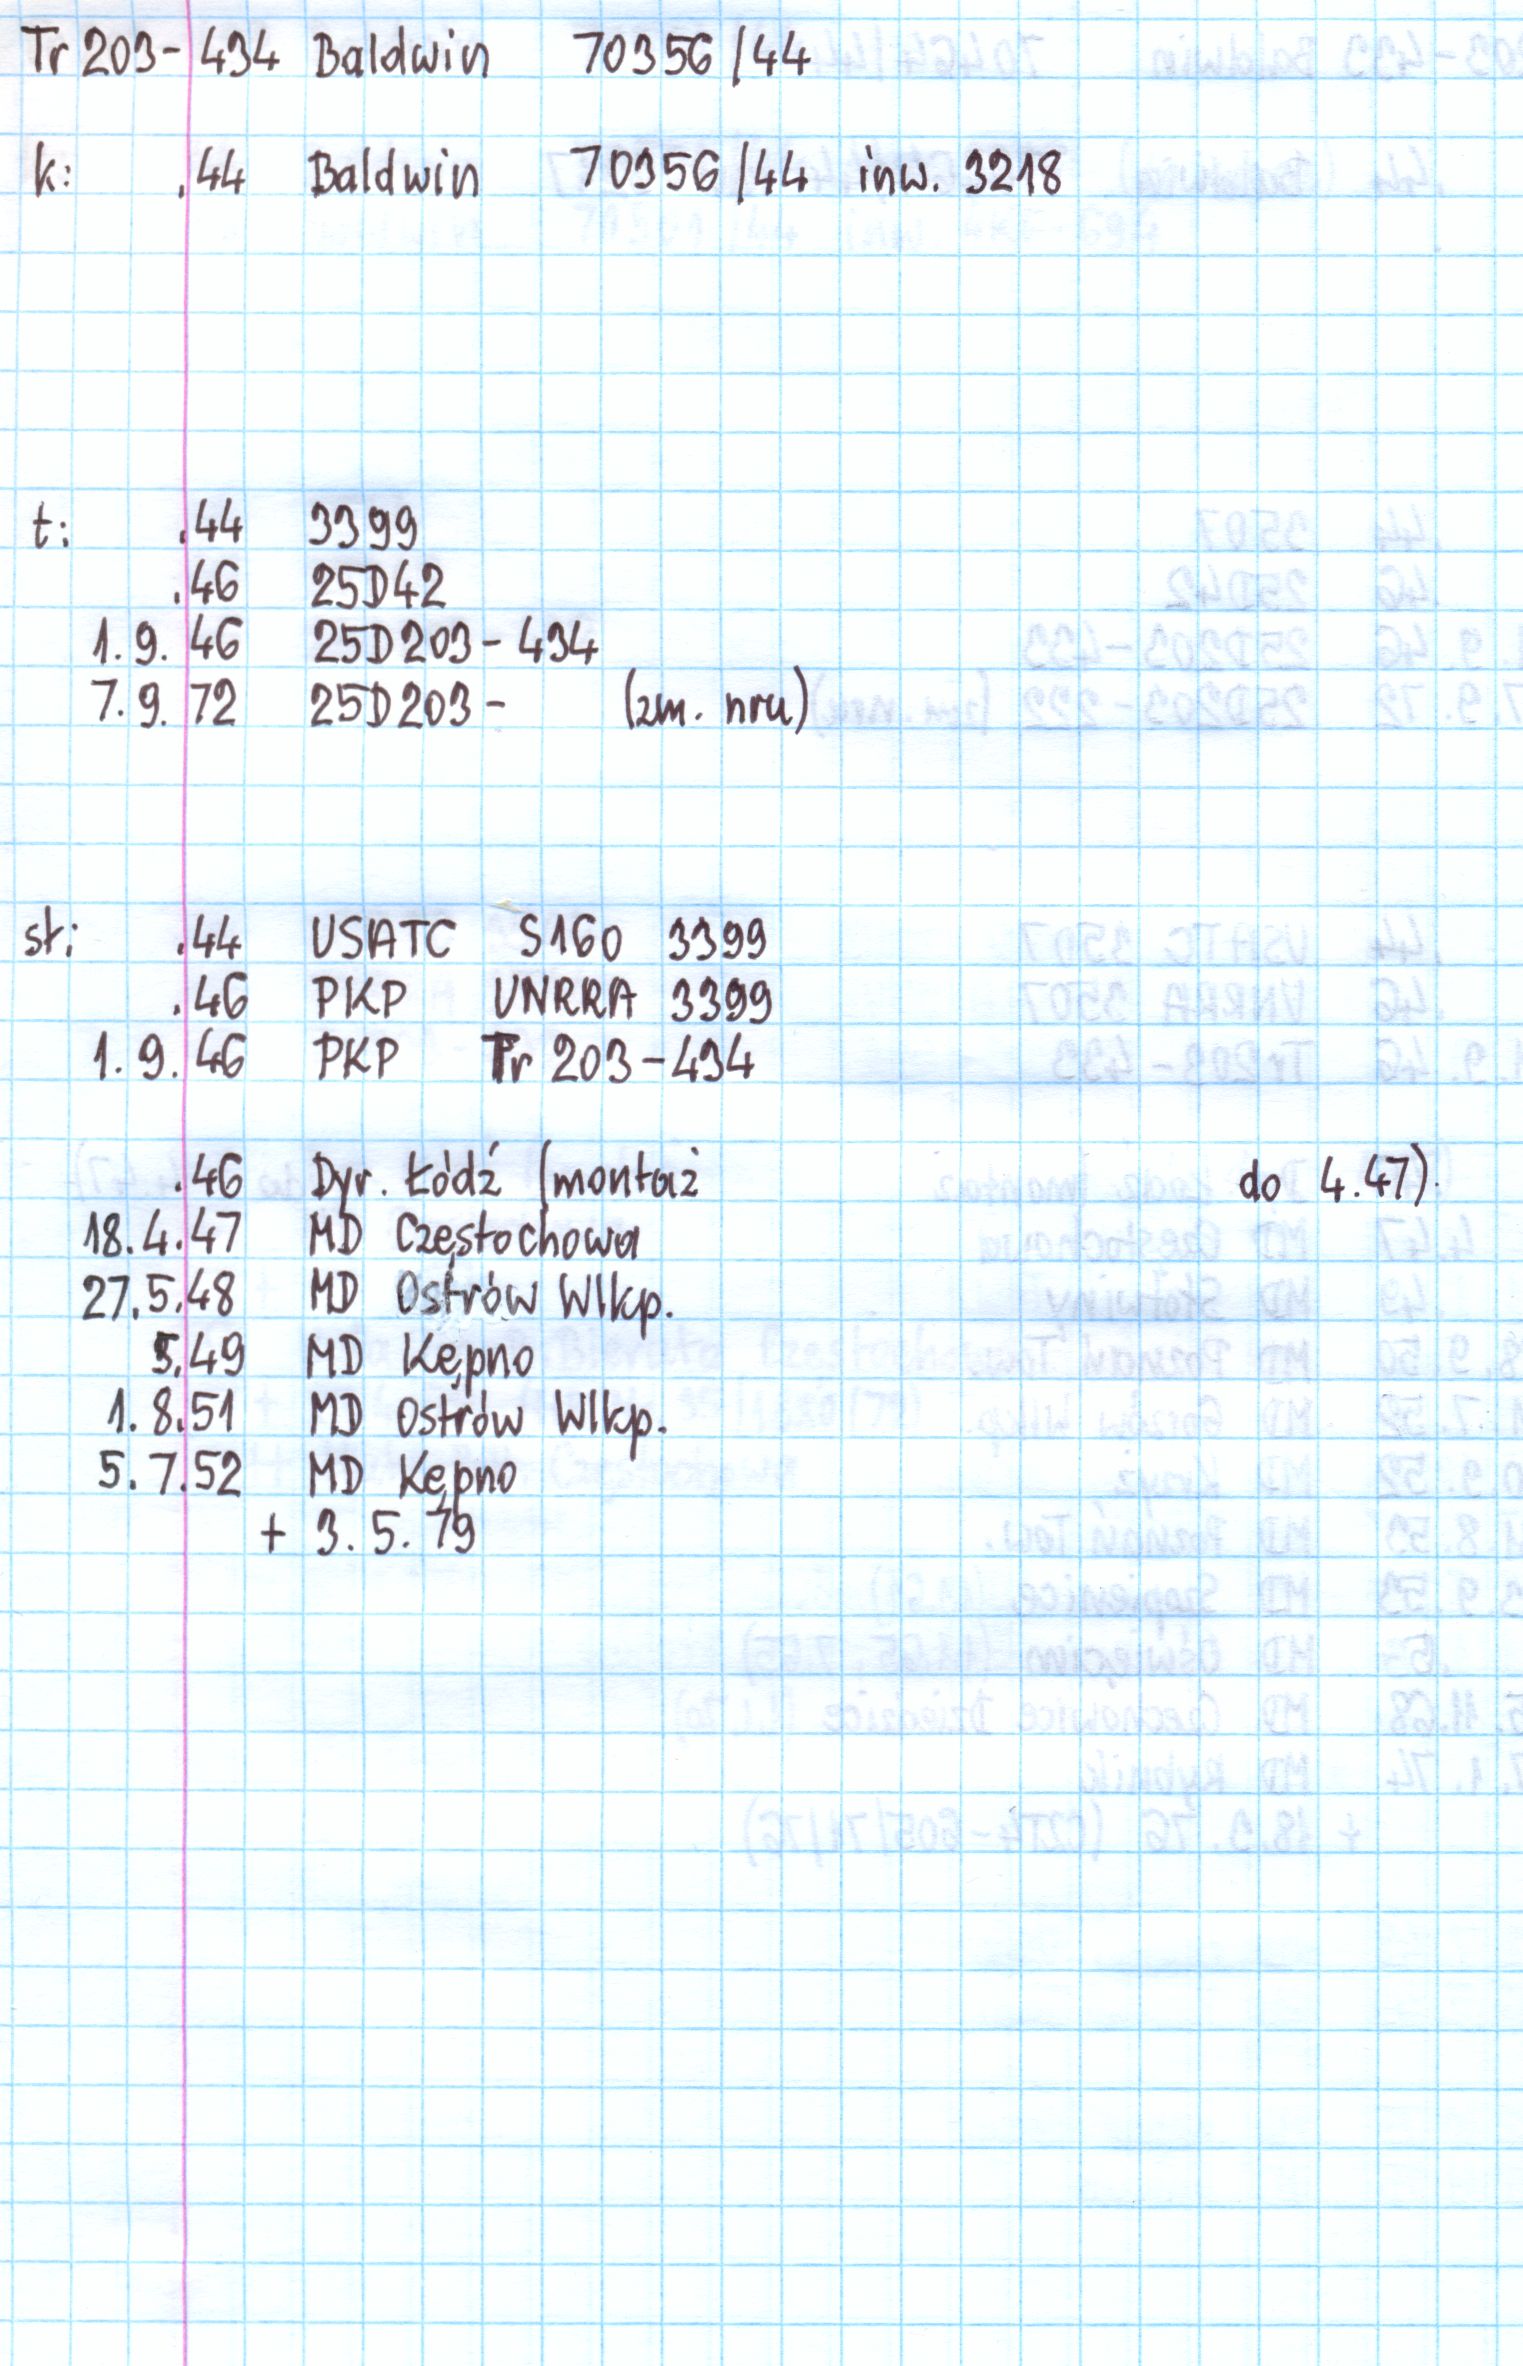 Tr 203-434 Baldwin 70356/44
k: .44 Baldwin 70356/44 inw. 3218
t: .44 3399
.46 25D42
1.9.46 25D203-434
7.9.72 25D203- (zm. nru)
st: .44 USATC S160 3399
.46 PKP UNRRA 3399
1.9.46 PKP Tr 203-434
.46 Dyr. Łódź (montaż do 4.47).
18.4.47 MD Częstochowa
27.5.48 MD Ostrów Wlkp.
5.49 MD Kępno
1.8.51 MD Ostrów Wlkp.
5.7.52 MD Kępno
+ 3.5.79